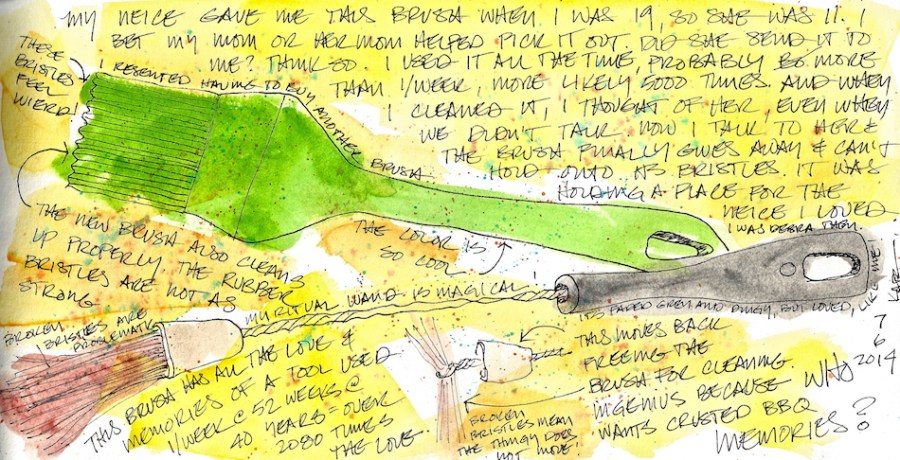 MY NEICE GAVE ME THIS BRUSH WHEN I WAS 19, SO SHE WAS 11. I
BET MY MOM OR HER MOM HELPED PICK IT OUT. DID SHE SEND IT TO
ME? THINK SO. I USED IT ALL THE TIME, PROBABLY BE MORE
THAN 1/WEEK, MORE LIKELY 5000 TIMES. AND WHEN
I CLEANED IT, I THOUGHT OF HER, EVEN WHEN
WE DIDN'T TALK. NOW I TALK TO HER &
THE BRUSH FINALLY GIVES AWAY & CAN'T
HOLD ONTO ITS BRISTLES. IT WAS
HOLDING A PLACE FOR THE
NEICE I LOVED
I WAS DEBRA THEN.
THESE
BRISTLES
FEEL
WIERD!
I RESENTED HAVING TO BUY ANOTHER BRUSH.
THE NEW BRUSH ALSO CLEANS
UP PROPERLY. THE RUBBER
BRISTLES ARE NOT AS
STRONG
THE COLOR IS
SO COOL
MY RITUAL WAND IS MAGICAL!
ITS FADED GREY AND DINGY, BUT LOVED,
LIKE ME
BROKEN
BRISTLES ARE
PROBLEMATIC
THIS BRUSH HAS ALL THE LOVE &
MEMORIES OF A TOOL USED
1/WEEK @ 52 WEEKS @
40 YEARS = OVER
2080 TIMES
THE LOVE
BROKEN
BRISTLES MEAN
THE THINGY DOES
NOT MOVE!
THIS MOVES BACK
FREEING THE
BRUSH FOR CLEANING
INGENIUS BECAUSE WHO
WANTS CRUSTED BBQ
MEMORIES?
7
6
2014